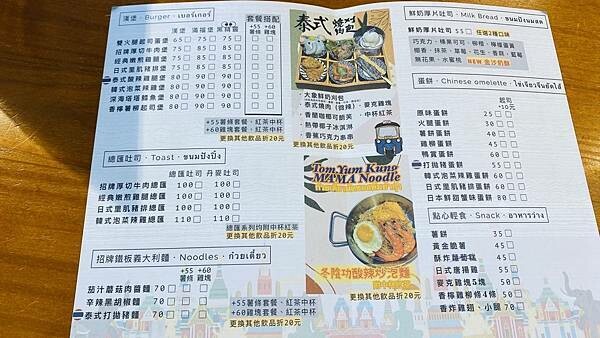 漢堡・Burger・เบอร์เกอร์
套餐搭配
漢堡 滿福堡 黑貝殼
+55 +60
薯條 雞塊
雙火腿起司蛋堡 65 75 75
招牌厚切牛肉堡 75 85 85
經典嫩煎雞腿堡 75 85 85
日式里肌豬排堡 75 85 85
泰式酸辣雞腿堡 80 90 90
韓式泡菜辣雞堡 80 90 90
深海塔塔鱈魚堡 80 90 90
香檸薯柳起司堡 80 90 90
+55薯條套餐、紅茶中杯
+60雞塊套餐、紅茶中杯
更換其他飲品折20元
總匯吐司・Toast・ขนมปังปิ้ง
總匯吐司 丹麥吐司
招牌厚切牛肉總匯 100 100
經典嫩煎雞腿總匯 100 100
日式里肌豬排總匯 100 100
韓式泡菜辣雞總匯 110 110
總匯系列均附中杯紅茶
更換其他飲品折20元
招牌鐵板義大利麵・Noodles・ก๋วยเตี๋ยว
+55 +60
薯條 雞塊
茄汁蘑菇肉醬麵 70
辛辣黑胡椒麵 70
泰式打拋豬麵 70
+55薯條套餐、紅茶中杯
+60雞塊套餐、紅茶中杯
更換其他飲品折20元
泰式
大象鮮奶刈包
泰式燒肉（微辣）・麥克雞塊
香蘭咖椰可頌美・中杯紅茶
熱帶椰子冰淇淋
香蕉巧克力串串
更換其他飲品折20元
Tom Yum Kung
MAMA Noodle
冬陰功酸辣炒泡麵
鮮奶厚片吐司・Milk Bread・ขนมปังนมสด
鮮奶厚片吐司 55 任選2種口味
巧克力・糖果可可・柳橙・檸檬蛋黃
榴香・抹茶・草莓・花生・香蒜・藍莓
無花果・水蜜桃 NEW 金沙奶酥
蛋餅・Chinese omelette・ไข่เจียวจีนยัดไส้
起司
+10元
原味蛋餅 25
火腿蛋餅 30
薯餅蛋餅 40
雞柳蛋餅 40
鴨賞蛋餅 60
打拋蛋餅 55
韓式泡菜蛋餅 60
日式豬排蛋餅 60
日本鮮甜蟹味蛋餅 60
點心輕食・Snack・อาหารว่าง
薯餅 35
黃金脆薯 45
酥炸蘿蔔糕 45
日式唐揚雞 55
麥克雞塊5塊 50
香檸雞柳條4條 50
香炸雞翅、小腿 70